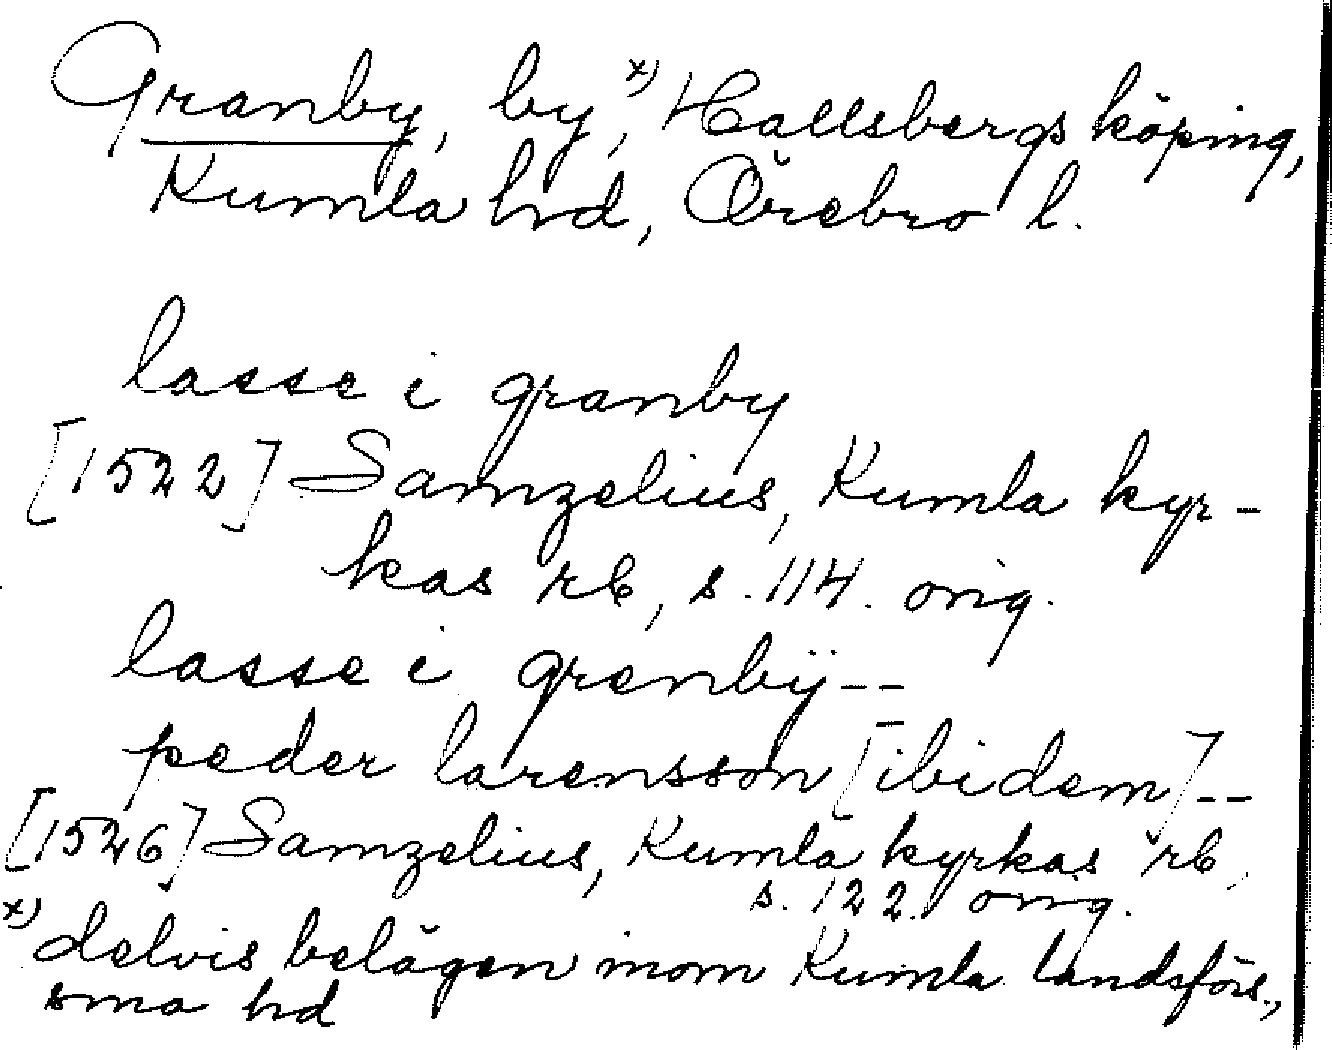 Granby, by,ˣ⁾ Hallsbergs köping,
Kumla hd, Örebro l.
lasse i granby
[1522] Samzelius, Kumla kyr-
kas rb, s. 114. orig.
lasse i grenbÿ--
peder larensson [ibidem]--
[1526] Samzelius, Kumla kyrkas rb,
s. 122. orig.
ˣ⁾ delvis belägen inom Kumla landsförs.,
sma hd